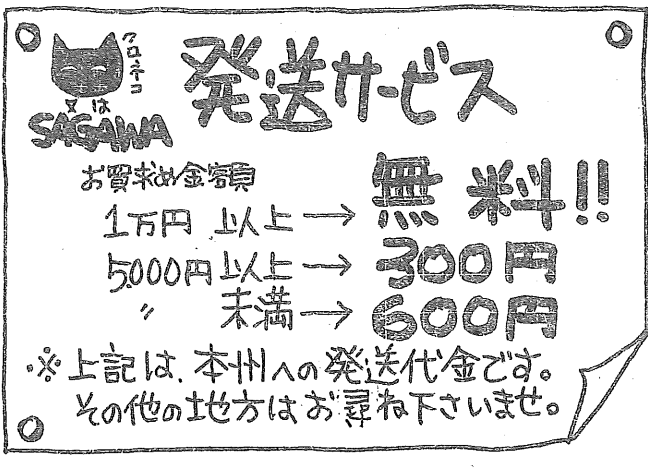 クロネコ
又は
SAGAWA
発送サービス
お買求め金額
1万円 以上→ 無料!!
5000円以上→ 300円
〃 未満→ 600円
※上記は、本州への発送代金です。
その他の地方はお尋ね下さいませ。